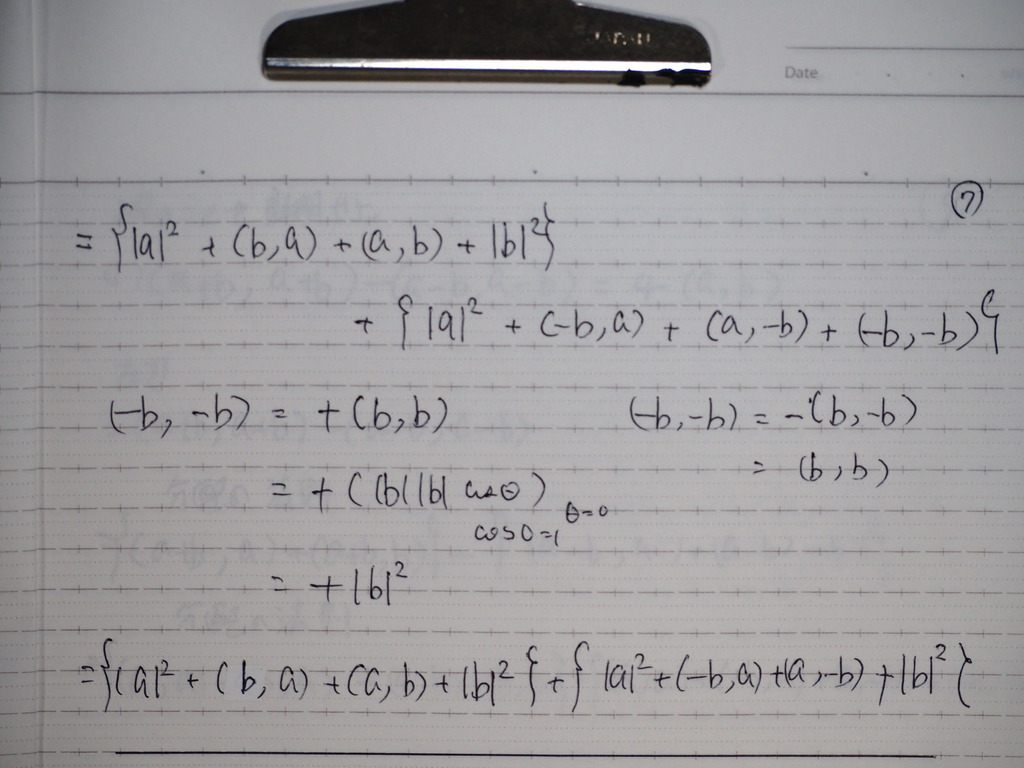 JAPAN
Date
⑦
= {|a|² + (b,a) + (a,b) + |b|²}
+ {|a|² + (-b,a) + (a,-b) + (-b,-b)}
(-b, -b) = +(b,b)
(-b,-b) = -(b,-b)
= (b,b)
= + (|b||b| cosθ)
θ=0
cos0=1
= +|b|²
={|a|² + (b,a) + (a,b) + |b|²} + {|a|² + (-b,a) + (a,-b) + |b|²}